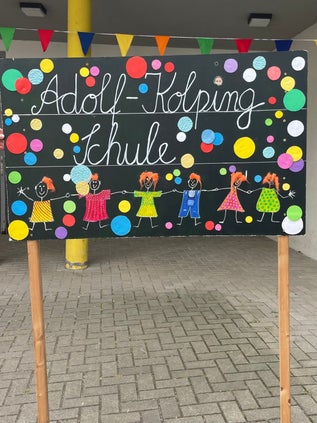 Adolf-Kolping
Schule